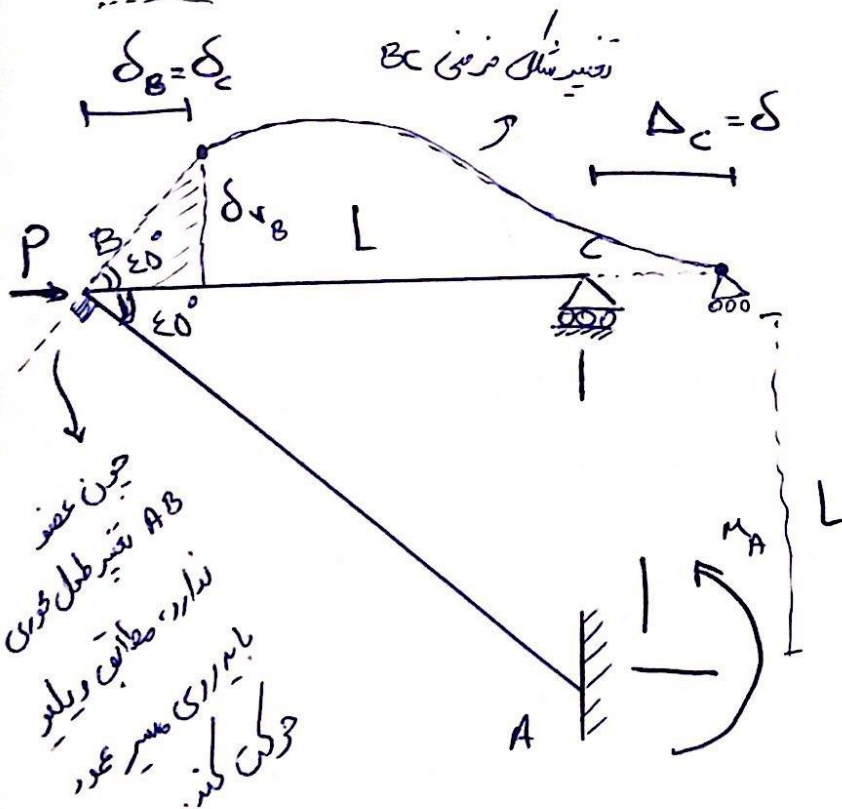 δ_B = δ_C
تغییر شکل فرضی BC
Δ_C = δ
δ_{v_B}
L
P
B
٤٥°
C
٤٥°
چون عضو
AB تغییر طول محوری
ندارد، مطابق ویلیو
باید روی مسیر عمود
حرکت کند.
L
M_A
A